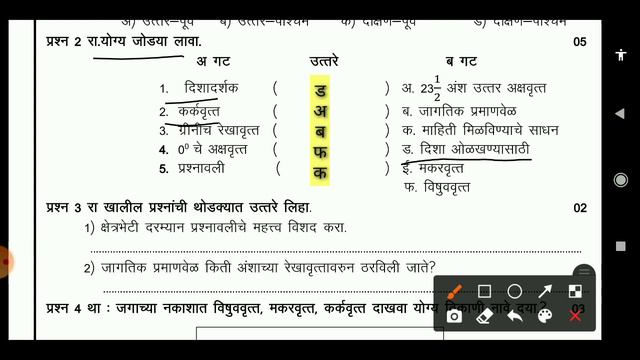 अ) उत्तर–पूर्व ब) उत्तर–पश्चिम क) दक्षिण–पूर्व ड) दक्षिण–पश्चिम
प्रश्न 2 रा.योग्य जोडया लावा. 05
अ गट उत्तरे ब गट
1. दिशादर्शक ( ड ) अ. 23 1/2 अंश उत्तर अक्षवृत्त
2. कर्कवृत्त ( अ ) ब. जागतिक प्रमाणवेळ
3. ग्रीनीच रेखावृत्त ( ब ) क. माहिती मिळविण्याचे साधन
4. 0⁰ चे अक्षवृत्त ( फ ) ड. दिशा ओळखण्यासाठी
5. प्रश्नावली ( क ) ई. मकरवृत्त
फ. विषुववृत्त
प्रश्न 3 रा खालील प्रश्नांची थोडक्यात उत्तरे लिहा. 02
1) क्षेत्रभेटी दरम्यान प्रश्नावलीचे महत्त्व विशद करा.
2) जागतिक प्रमाणवेळ किती अंशाच्या रेखावृत्तावरुन ठरविली जाते?
प्रश्न 4 था : जगाच्या नकाशात विषुववृत्त, मकरवृत्त, कर्कवृत्त दाखवा योग्य ठिकाणी नावे दया.? 03